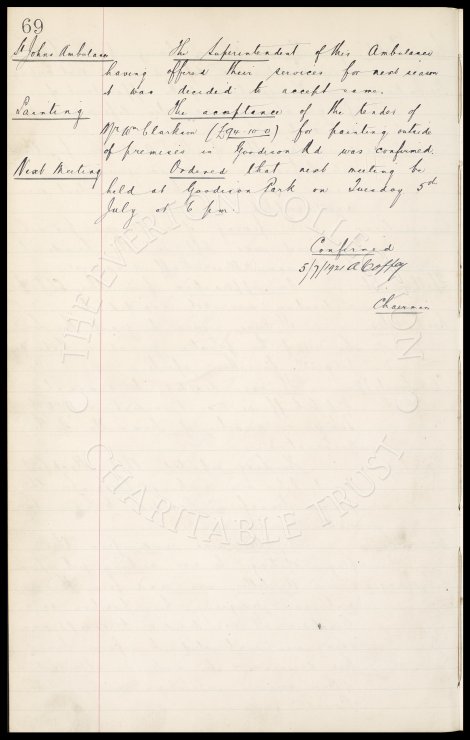 69
St Johns Ambulance The Superintendent of this Ambulance
having offered their services for next season
it was decided to accept same.
Painting The acceptance of the tender of
Mr Wm Clarkson (£94-10-0) for painting outside
of premises in Goodison Rd was confirmed.
Next Meeting Ordered that next meeting be
held at Goodison Park on Tuesday 5th
July at 6 pm.
Confirmed
5/7/1921 A Coffey
Chairman
THE EVERTON COLLECTION
CHARITABLE TRUST